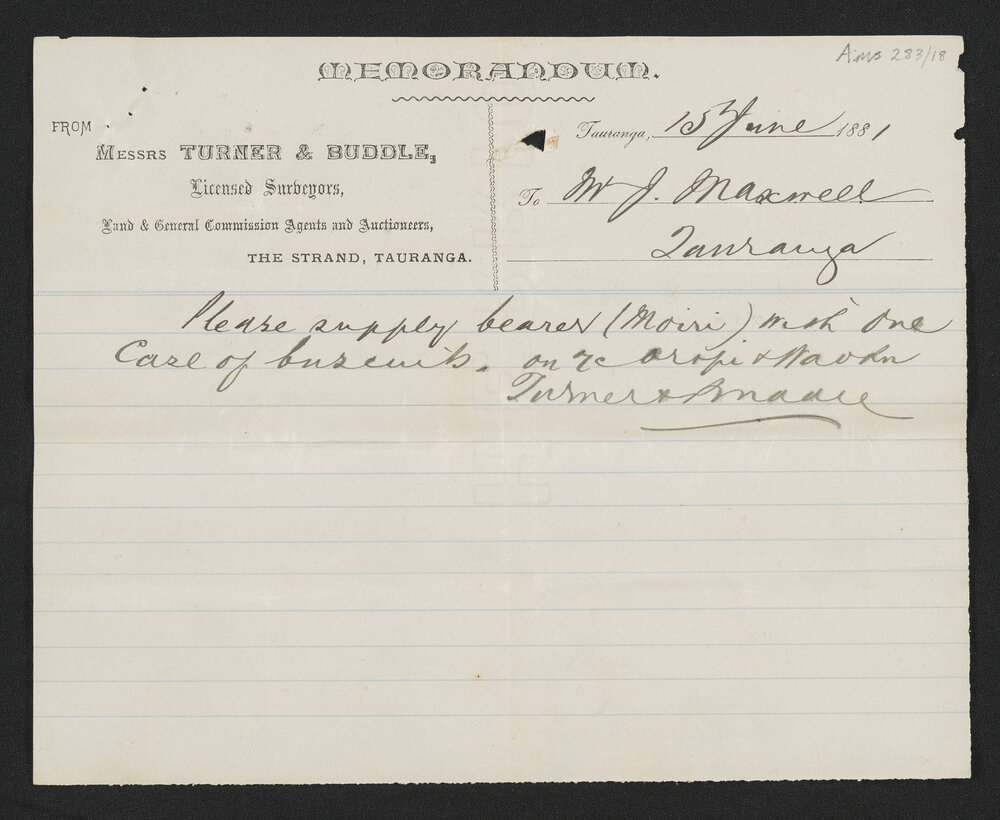 Ams 283/18
MEMORANDUM.
FROM
MESSRS TURNER & BUDDLE,
Licensed Surveyors,
Land & General Commission Agents and Auctioneers,
THE STRAND, TAURANGA.
Tauranga, 15th June 1881
To Mr J. Maxwell
Tauranga
Please supply bearer (Moiri) with One
Case of buscuits. on a/c Oropi &
Turner & Buddle